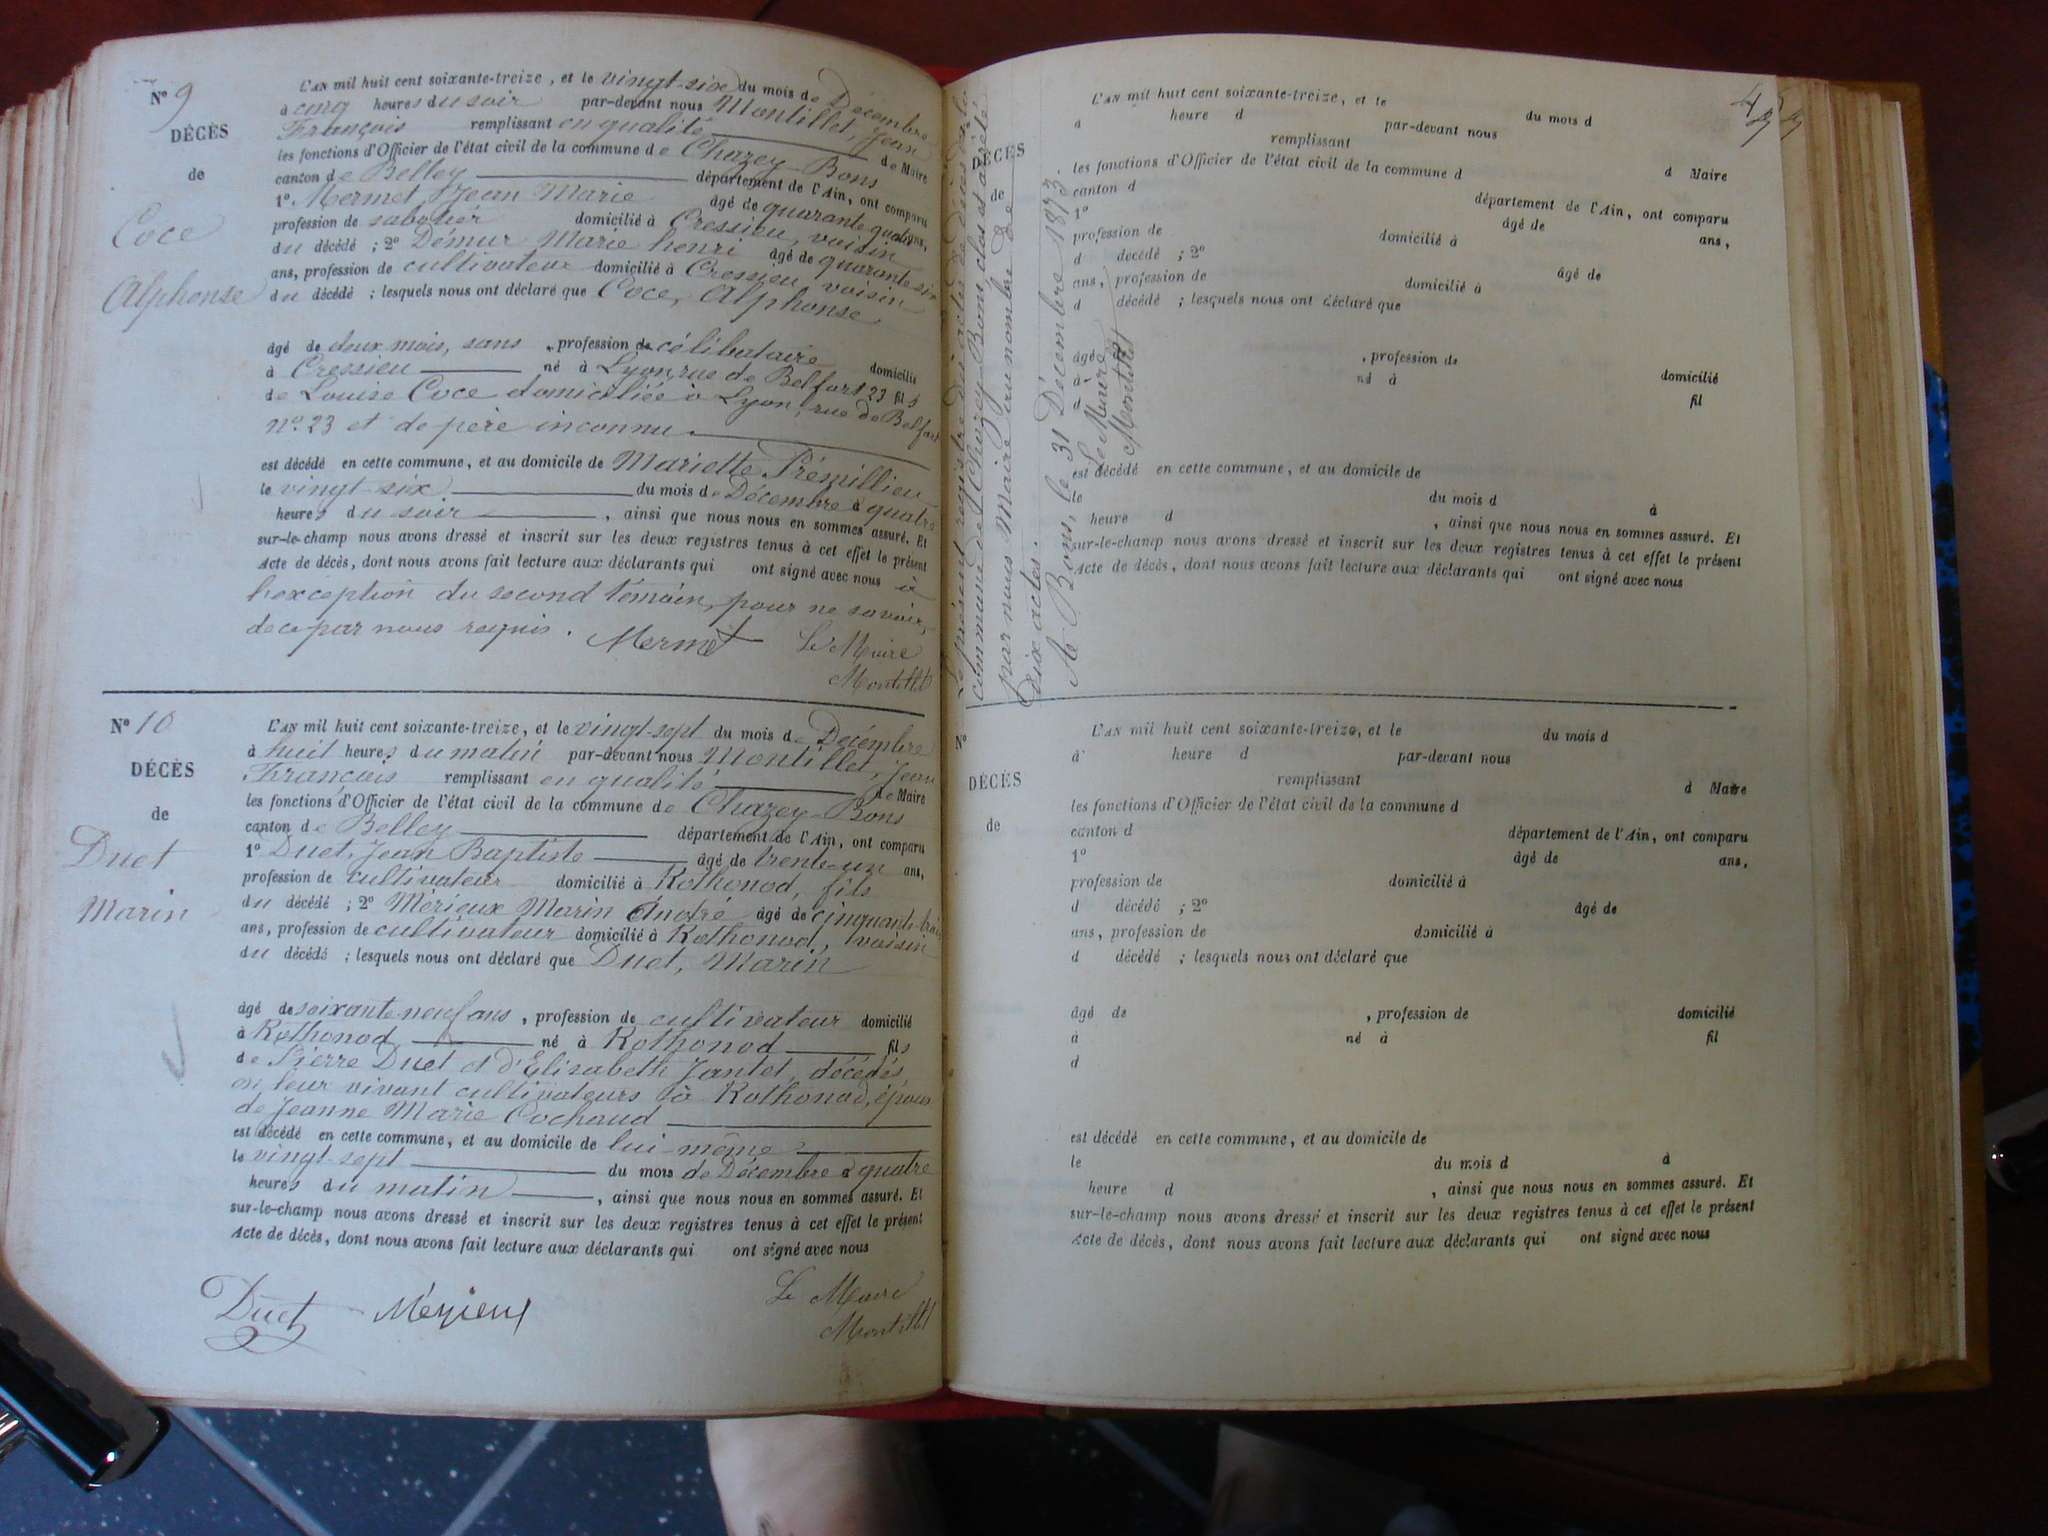 N° 9
DÉCÈS
de
Coce
Alphonse
L'AN mil huit cent soixante-treize, et le vingt-six du mois de Décembre
à cinq heures du soir par-devant nous Montillet, Jean
François remplissant en qualité de Maire
les fonctions d'Officier de l'état civil de la commune de Chazey-Bons
canton de Belley département de l'Ain, ont comparu
1° Mermet Jean Marie âgé de quarante quatre ans,
profession de sabotier domicilié à Cressieu, voisin
du décédé ; 2° Démur Marie henri âgé de quarante six
ans, profession de cultivateur domicilié à Cressieu, voisin
du décédé ; lesquels nous ont déclaré que Coce, Alphonse
âgé de deux mois, sans profession de célibataire domicilié
à Cressieu né à Lyon, rue de Belfort 23 fils
de Louise Coce domiciliée à Lyon, rue de Belfort
n° 23 et de père inconnu
est décédé en cette commune, et au domicile de Mariette Prémillieu
le vingt-six du mois de Décembre à quatre
heures du soir, ainsi que nous nous en sommes assuré. Et
sur-le-champ nous avons dressé et inscrit sur les deux registres tenus à cet effet le présent
Acte de décès, dont nous avons fait lecture aux déclarants qui ont signé avec nous à
l'exception du second témoin, pour ne savoir,
de ce par nous requis. Mermet Le Maire
Montillet
N° 10
DÉCÈS
de
Duet
Marin
L'AN mil huit cent soixante-treize, et le vingt-sept du mois de Décembre
à huit heures du matin par-devant nous Montillet, Jean
François remplissant en qualité de Maire
les fonctions d'Officier de l'état civil de la commune de Chazey-Bons
canton de Belley département de l'Ain, ont comparu
1° Duet, Jean Baptiste âgé de trente-un ans,
profession de cultivateur domicilié à Rothonod, fils
du décédé ; 2° Mérieux Marin André âgé de cinquante-trois
ans, profession de cultivateur domicilié à Rothonod, voisin
du décédé ; lesquels nous ont déclaré que Duet, Marin
âgé de soixante neuf ans, profession de cultivateur domicilié
à Rothonod né à Rothonod fils
de Pierre Duet et d'Elisabeth Jantet, décédés,
en leur vivant cultivateurs à Rothonod, époux
de Jeanne Marie Cochaud
est décédé en cette commune, et au domicile de lui-même
le vingt-sept du mois de Décembre à quatre
heures du matin, ainsi que nous nous en sommes assuré. Et
sur-le-champ nous avons dressé et inscrit sur les deux registres tenus à cet effet le présent
Acte de décès, dont nous avons fait lecture aux déclarants qui ont signé avec nous
Duet Mérieux Le Maire
Montillet
Le présent registre des actes de décès de la
commune de Chazey-Bons, clos et arrêté
par nous Maire au nombre de
Dix actes.
A Bons, le 31 Décembre 1873.
Le Maire
Montillet
DÉCÈS
de
L'AN mil huit cent soixante-treize, et le du mois d
à heure d par-devant nous
remplissant
les fonctions d'Officier de l'état civil de la commune d d Maire
canton d département de l'Ain, ont comparu
1° âgé de ans,
profession de domicilié à
d décédé ; 2° âgé de
ans, profession de domicilié à
d décédé ; lesquels nous ont déclaré que
âgé , profession de domicilié
à né à fil
d
est décédé en cette commune, et au domicile de
le du mois d à
heure d , ainsi que nous nous en sommes assuré. Et
sur-le-champ nous avons dressé et inscrit sur les deux registres tenus à cet effet le présent
Acte de décès, dont nous avons fait lecture aux déclarants qui ont signé avec nous
N°
DÉCÈS
de
L'AN mil huit cent soixante-treize, et le du mois d
à heure d par-devant nous
remplissant d Maire
les fonctions d'Officier de l'état civil de la commune d
canton d département de l'Ain, ont comparu
1° âgé de ans,
profession de domicilié à
d décédé ; 2° âgé de
ans, profession de domicilié à
d décédé ; lesquels nous ont déclaré que
âgé de , profession de domicilié
à né à fil
d
est décédé en cette commune, et au domicile de
le du mois d à
heure d , ainsi que nous nous en sommes assuré. Et
sur-le-champ nous avons dressé et inscrit sur les deux registres tenus à cet effet le présent
Acte de décès, dont nous avons fait lecture aux déclarants qui ont signé avec nous